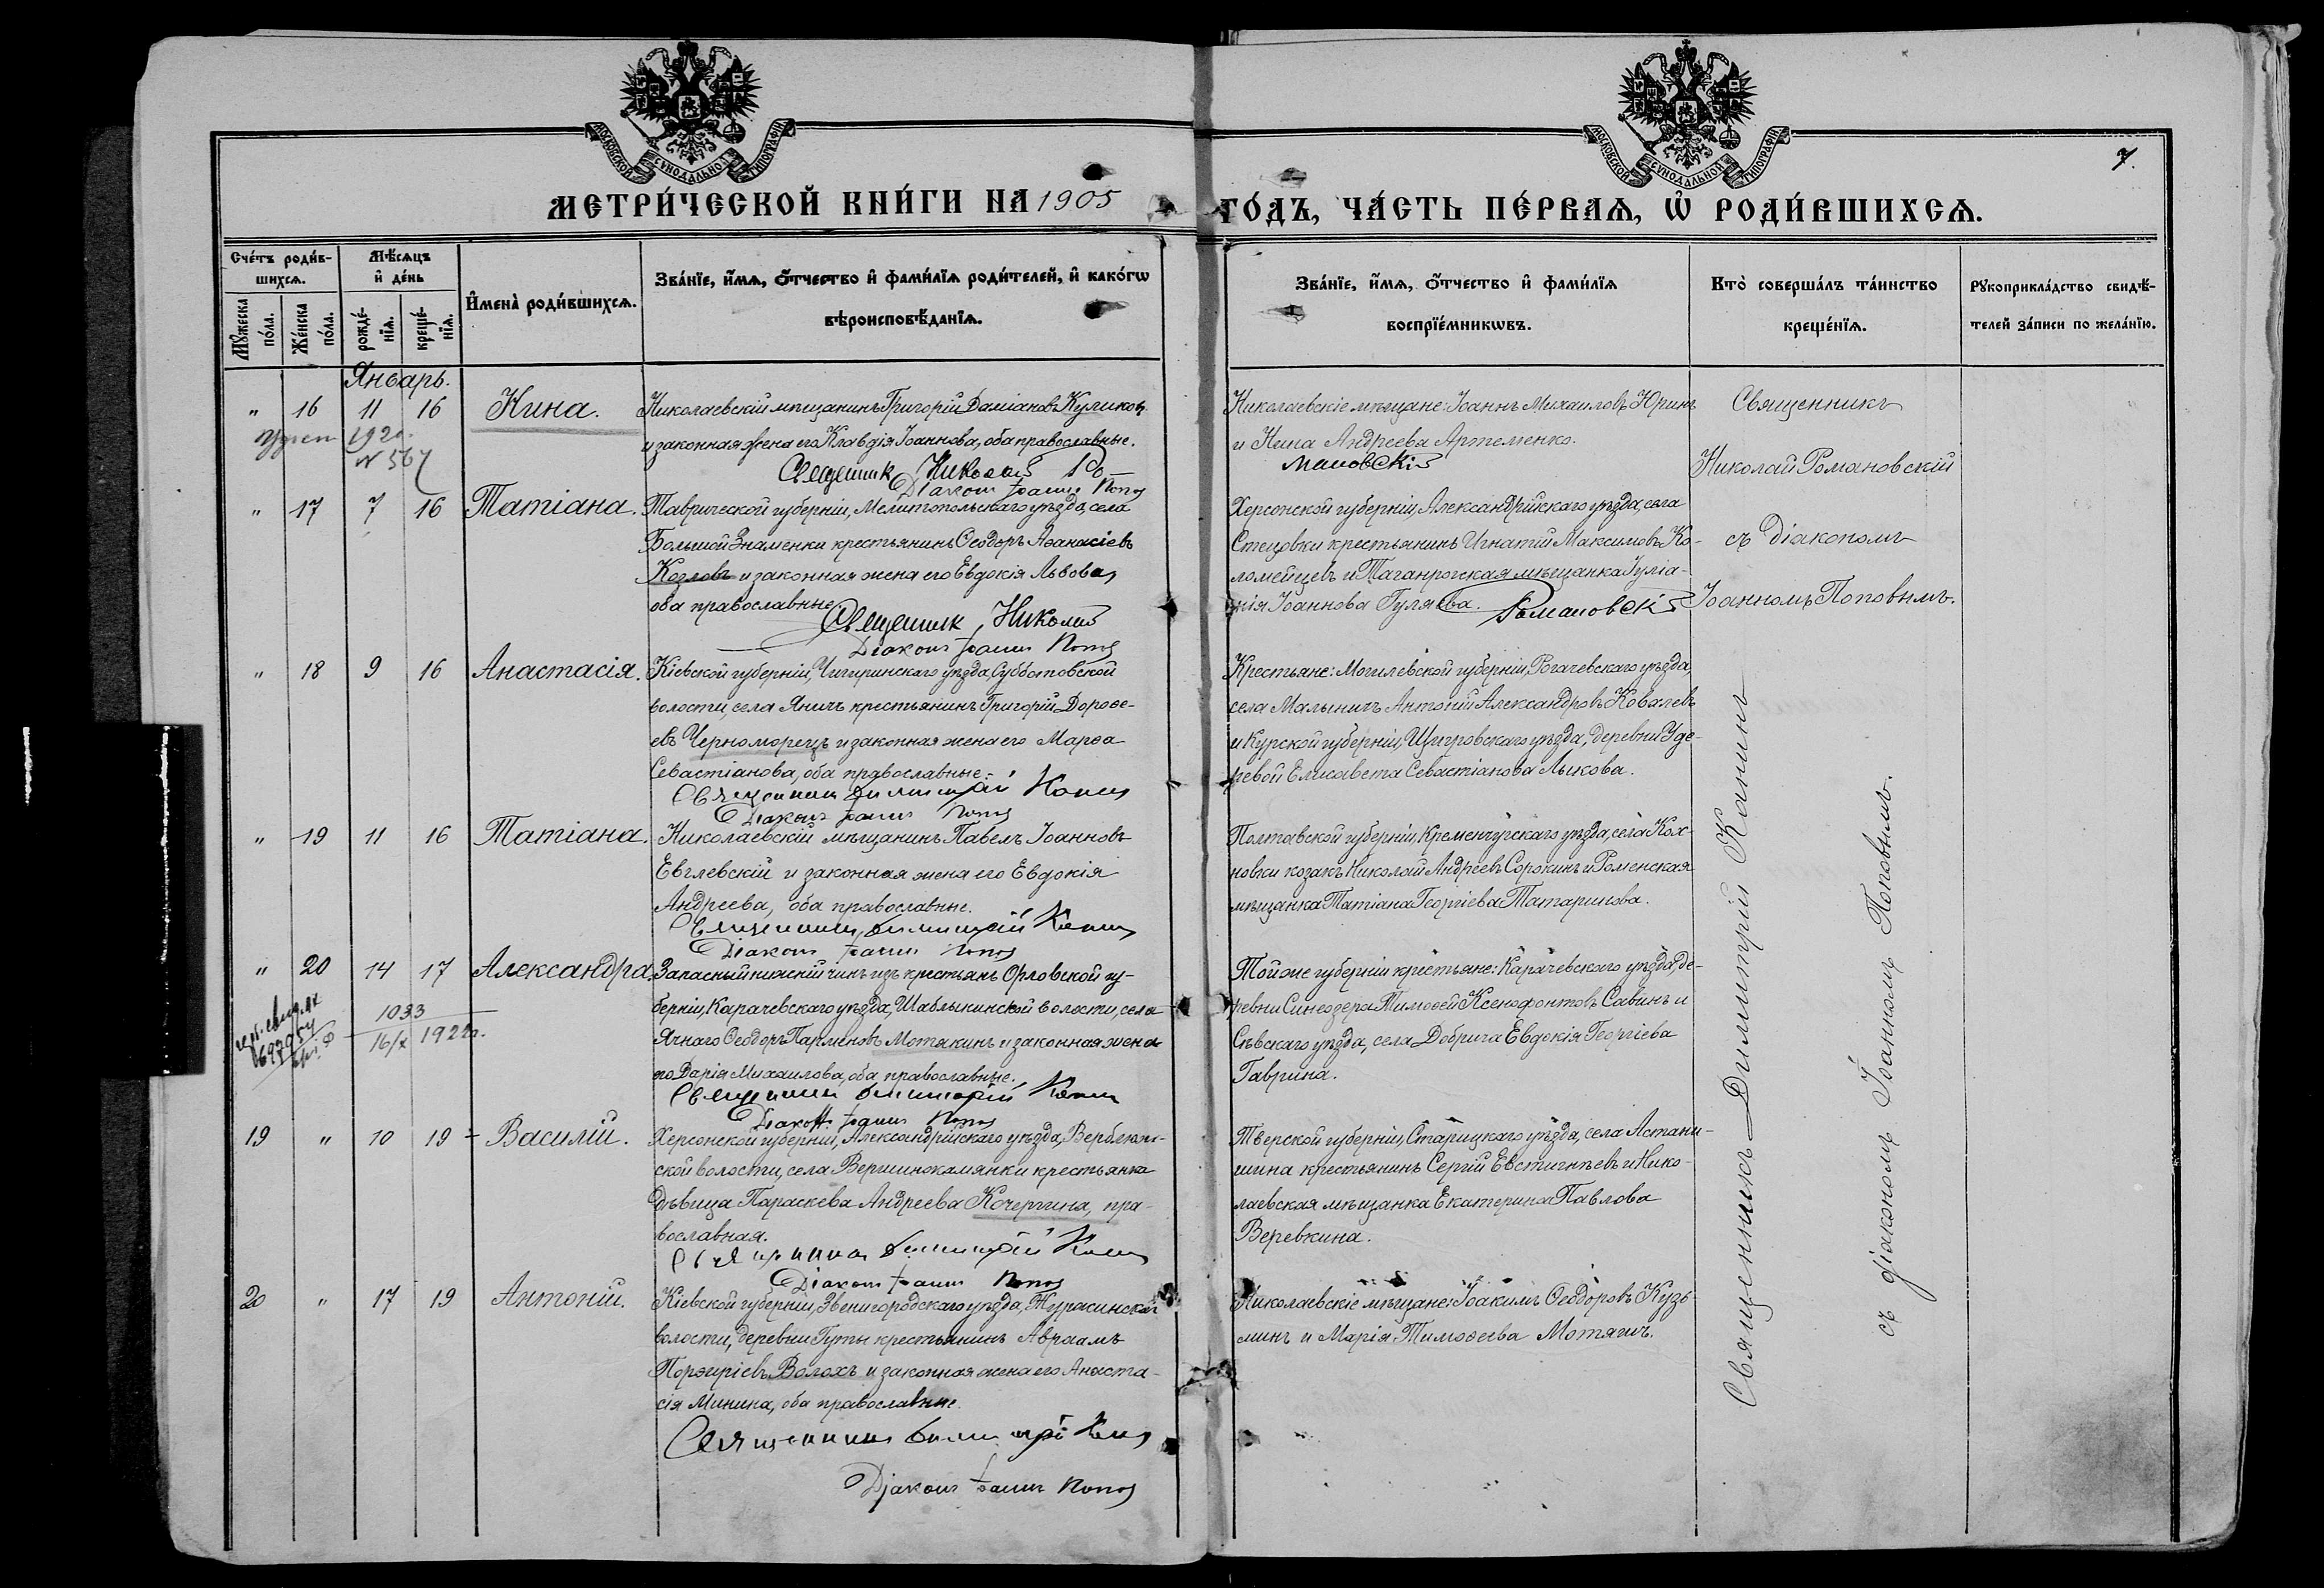 МОСКОВСКОЙ СѴНОДАЛЬНОЙ ТИПОГРАФІИ
МОСКОВСКОЙ СѴНОДАЛЬНОЙ ТИПОГРАФІИ
7.
МЕТРИ́ЧЕСКОЙ КНИ́ГИ НА 1905 ГО́ДЪ, ЧА́СТЬ ПЕ́РВАѦ, Ѡ҆ РОДИ́ВШИХСѦ.
Сче́тъ роди́в-
шихсѧ.
Мꙋ́жеска по́ла.
Же́нска по́ла.
Мѣ́сѧцъ
и҆ де́нь
рожде́-
нїѧ.
креще́-
нїѧ.
И҆мена̀ роди́вшихсѧ.
Зва́нїе, и҆́мѧ, ѻ҆́тчество и҆ фами́лїѧ роди́телей, и҆ како́гѡ
вѣроисповѣ́данїѧ.
Зва́нїе, и҆́мѧ, ѻ҆́тчество и҆ фами́лїѧ
воспрїе́мникѡвъ.
Кто̀ соверша́лъ та́инство
креще́нїѧ.
Рꙋкоприкла́дство свидѣ́-
телей за́писи по жела́нїю.
Январь.
" 16 11 16 Нина.
Николаевскій мѣщанинъ Григорій Даміановъ Куликовъ
и законная жена его Клавдія Іоаннова, оба православные.
Священникъ Николай Ро-
мановскій
Діаконъ Іоаннъ Поповъ
Николаевскіе мѣщане: Іоаннъ Михаиловъ Юринъ
и Нина Андреева Артеменко.
Священникъ
Николай Романовскій
съ Діакономъ
Іоанномъ Поповымъ.
192
N 567
" 17 7 16 Татіана.
Таврической губерніи, Мелитопольскаго уѣзда, села
Большой Знаменки крестьянинъ Ѳеодоръ Аѳанасіевъ
Козловъ и законная жена его Евдокія Львова,
оба православные.
Священникъ Николай Романовскій
Діаконъ Іоаннъ Поповъ
Херсонской губерніи, Александрійскаго уѣзда, села
Стецовки крестьянинъ Игнатій Максимовъ Ко-
ломейцевъ и Таганрогская мѣщанка Іуліа-
нія Іоаннова Гуляева.
" 18 9 16 Анастасія.
Кіевской губерніи, Чигиринскаго уѣзда, Субботовской
волости, села Яничъ крестьянинъ Григорій Дороѳе-
евъ Черноморецъ и законная жена его Марѳа
Севастіанова, оба православные.
Священникъ Димитрій Канинъ
Діаконъ Іоаннъ Поповъ
Крестьяне: Могилевской губерніи, Рогачевскаго уѣзда,
села Малыничъ Антоній Александровъ Ковалевъ
и Курской губерніи, Щигровскаго уѣзда, деревни Уде-
ревой Елисавета Севастіанова Лыкова.
Священникъ Димитрій Канинъ
съ діакономъ Іоанномъ Поповымъ.
" 19 11 16 Татіана.
Николаевскій мѣщанинъ Павелъ Іоанновъ
Евглевскій и законная жена его Евдокія
Андреева, оба православные.
Священникъ Димитрій Канинъ
Діаконъ Іоаннъ Поповъ
Полтавской губерніи, Кременчугскаго уѣзда, села Кох-
новки козакъ Николай Андреевъ Сорокинъ и Роменская
мѣщанка Татіана Георгіева Татаринова.
" 20 14 17 Александра.
1033
16/X 1922г.
Запасный нижній чинъ изъ крестьянъ Орловской гу-
берніи, Карачевскаго уѣзда, Шаблыкинской волости, села
Ячнаго Ѳеодоръ Парменовъ Мотякинъ и законная жена
его Дарія Михаилова, оба православные.
Священникъ Димитрій Канинъ
Діаконъ Іоаннъ Поповъ
Той же губерніи крестьяне: Карачевскаго уѣзда, де-
ревни Синеозера Тимоѳей Ксенофонтовъ Савинъ и
Сѣвскаго уѣзда, села Добрича Евдокія Георгіева
Гаврина.
19 " 10 19 Василій.
Херсонской губерніи, Александрійскаго уѣзда, Верблюж-
ской волости, села Вершинокамянки крестьянка
дѣвица Параскева Андреева Кочергина, пра-
вославная.
Священникъ Димитрій Канинъ
Діаконъ Іоаннъ Поповъ
Тверской губерніи, Старицкаго уѣзда, села Астани-
шина крестьянинъ Сергій Евстигнѣевъ и Нико-
лаевская мѣщанка Екатерина Павлова
Веревкина.
20 " 17 19 Антоній.
Кіевской губерніи, Звенигородскаго уѣзда,
волости, деревни Гуты крестьянинъ Авраамъ
Порфиріевъ Волохъ и законная жена его Анаста-
сія Минина, оба православные.
Священникъ Димитрій Канинъ
Діаконъ Іоаннъ Поповъ
Николаевскіе мѣщане: Іоакимъ Ѳеодоровъ Кузь-
минъ и Марія Тимоѳеева Мотягичъ.